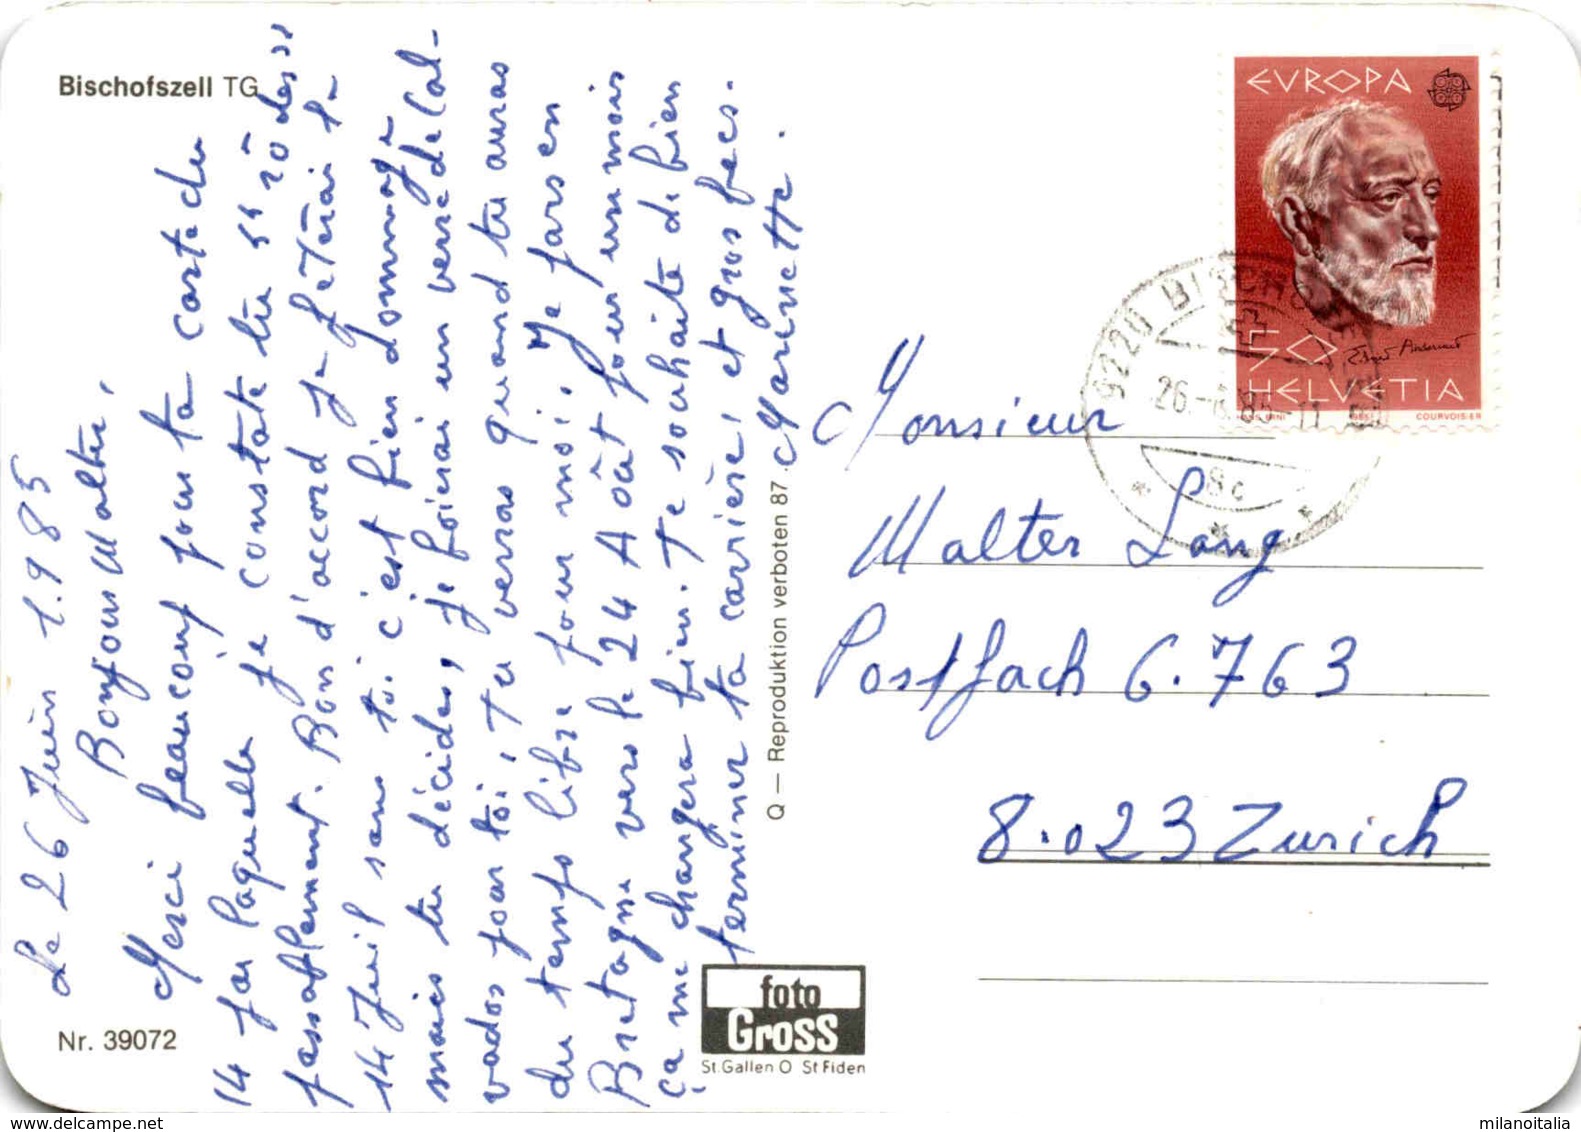 Bischofszell TG
Le 26 Juin 1.985
Bonjour Walter,
Merci beaucoup pour ta carte du
14 par laquelle je constate tu
passablement. Bon d'accord je fêterai le
14 Juil sans toi c'est bien dommage
mais tu décides, je boirai un verre de Cal-
vados pour toi, Tu verras quand tu auras
du temps libre pour moi. Je pars en
Bretagne vers le 24 Août pour un mois
ça me changera bien. Te souhaite de bien
terminer ta carrière, et gros becs.
Marinette.
Nr. 39072
Q — Reproduktion verboten 87
foto
Gross
St.Gallen O St Fiden
EVROPA
50
HELVETIA
1985
COURVOISIER
9220 BISCHO
26.-6.85-11
8c
Monsieur
Walter Lang
Postfach 6.763
8.023 Zurich
delcampe.net
milanoitalia